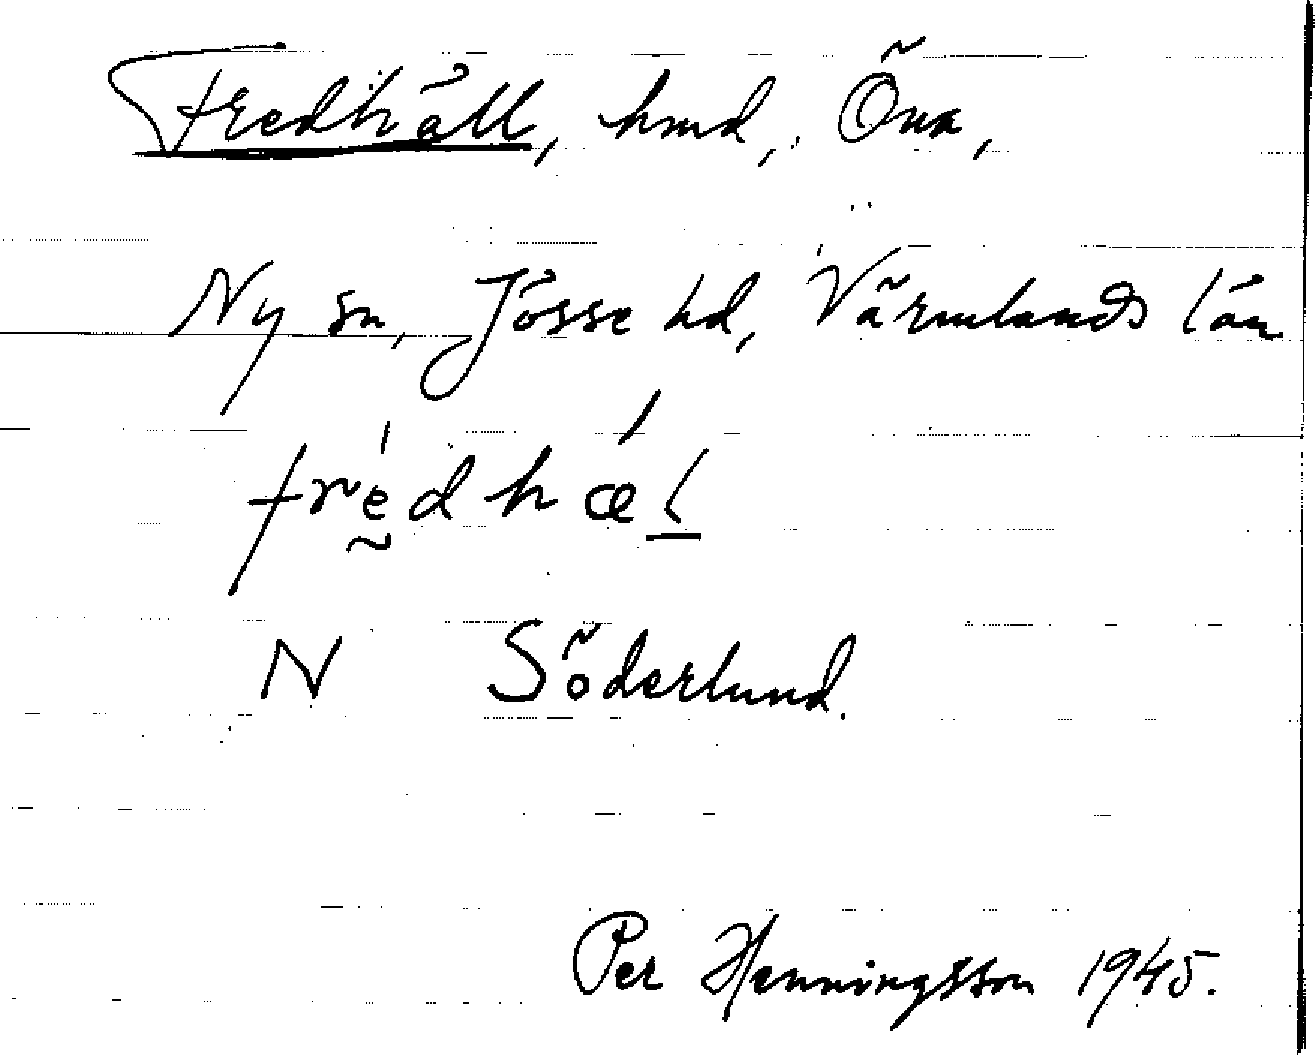 Fredhäll, hmd, Öna,
Ny sn, Jösse hd, Värmlands län
frédhæ̀l
N Söderlund.
Per Henningsson 1945.